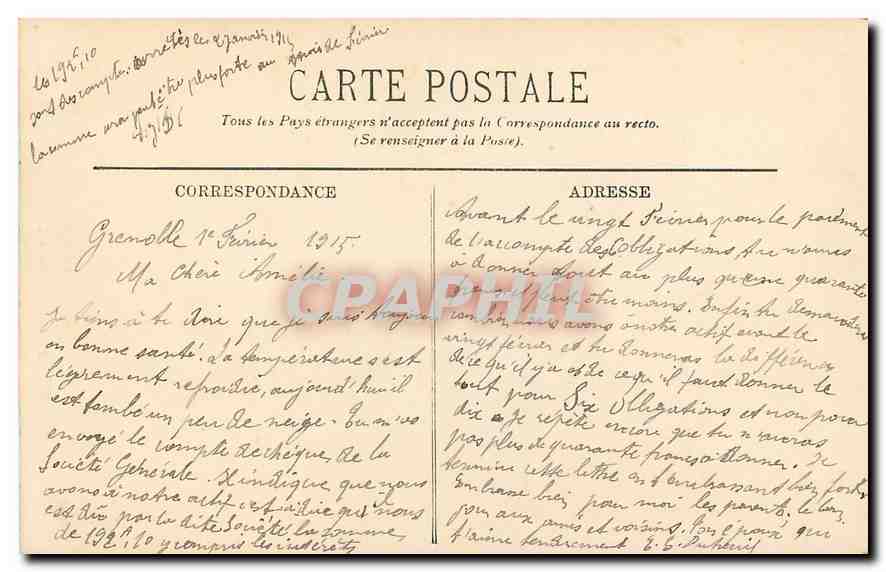 les 192f,10
sont des comptes arretés les 2 janvier 1915
la somme sera peut être plus forte au mois de Février
CARTE POSTALE
Tous les Pays étrangers n'acceptent pas la Correspondance au recto.
(Se renseigner à la Poste).
CORRESPONDANCE
Grenoble 1er Février 1915.
Ma chère Amélie
Je tiens à te dire que je suis toujours
en bonne santé. La température s'est
légèrement refroidie, aujourd'hui il
est tombé un peu de neige. Tu m'as
envoyé le compte de chèques de la
Société Générale. Il indique que nous
avons à notre actif c'est à dire qu'il nous
est dû par la dite Société la somme
de 192f,10 y compris les intérêts
ADRESSE
Avant le vingt Février pour le paiement
de l'accompte des 6 obligations tu n'auras
à donner tout au plus qu'une quarantaine
peut être moins. Enfin tu demanderas
combien nous avons à notre actif avant le
vingt février et tu donneras la différence
de ce qu'il y a et de ce qu'il faut donner le
tout pour Six Obligations et non pour
dix. Je répète encore que tu n'auras
pas plus de quarante francs à donner. Je
termine cette lettre en t'embrassant bien fort.
Embrasse bien pour moi les parents. le bon
jour aux amis et voisins. Ton époux qui
t'aime tendrement
CPAPHIL